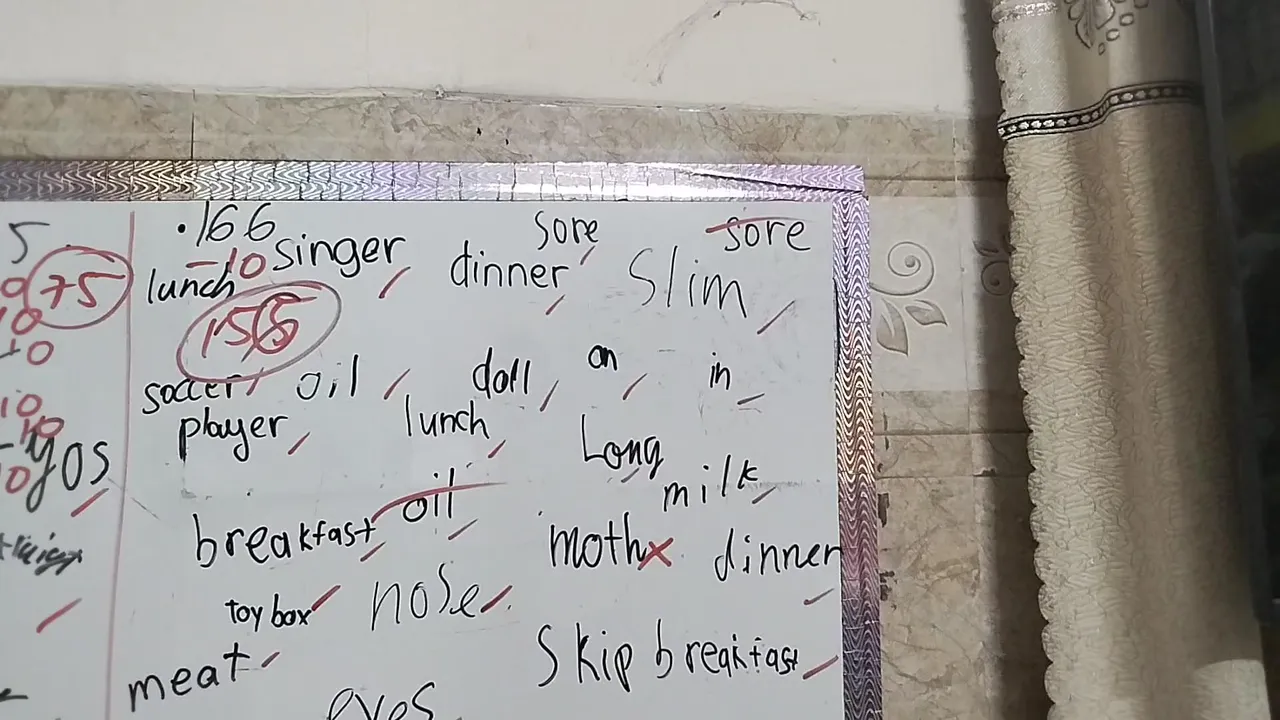 5
.166 sore sore
-10 singer dinner slim
lunch
75
10
10
soccer oil doll on in
player lunch Long
10
10
yos milk
breakfast oil
moth x dinner
toy box nose
meat skip breakfast
eyes